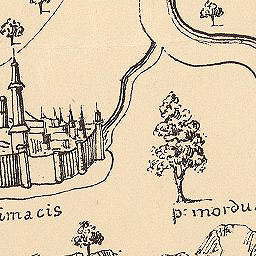 imacis
p: mordu